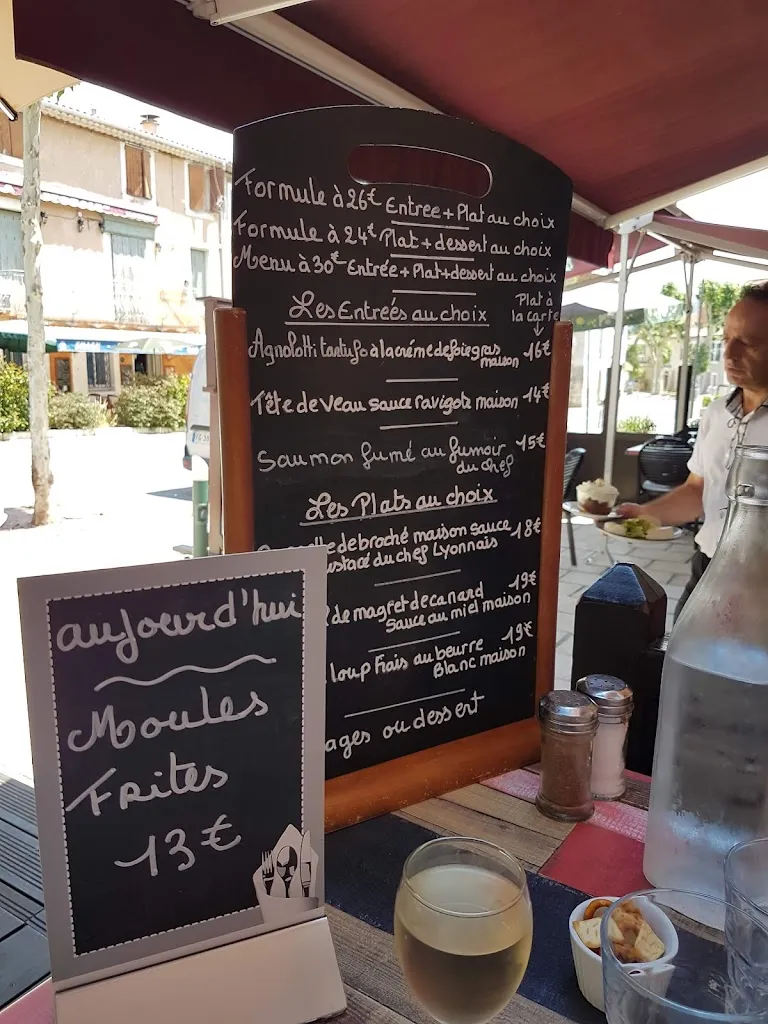 Formule à 26€ Entree + Plat au choix
Formule à 24€ Plat + dessert au choix
Menu à 30€ Entrée + Plat + dessert au choix
Les Entreés au choix
Plat à
la carte
Agnolotti tartufo à la créme de foie gras
maison 16€
Tête de veau sauce ravigote maison 14€
Saumon fumé au fumoir 15€
du chef
Les Plats au choix
de broché maison sauce 18€
du chef Lyonnais
de magret de canard 19€
sauce au miel maison
loup frais au beurre 19€
Blanc maison
ou dessert
aujourd'hui
Moules
Frites
13€